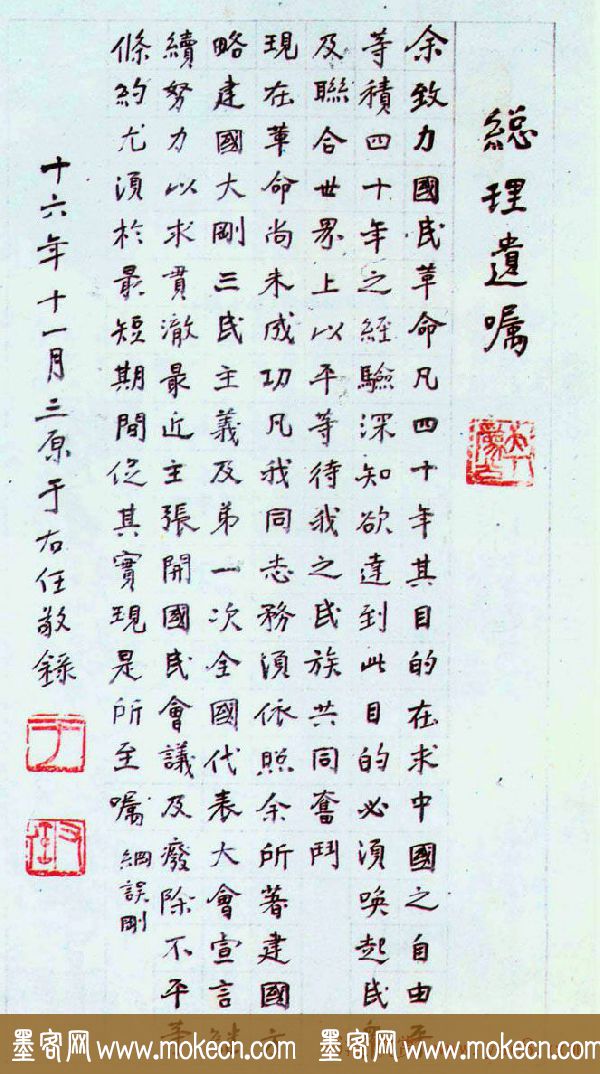 緫理遺嘱
余致力國民革命凡四十年其目的在求中國之自由平
等積四十年之經驗深知欲達到此目的必須喚起民
及聯合世界上以平等待我之民族共同奮鬥
現在革命尚未成功凡我同志務須依照余所著建國方
略建國大剛三民主義及弟一次全國代表大會宣言繼
續努力以求貫澈最近主張開國民會議及廢除不平等
條約尤須於最短期間促其實現是所至嘱 綱誤剛
十六年十一月三原于右任敬錄
于
墨客网 www.mokecn.com 墨客网 www.mokecn.com